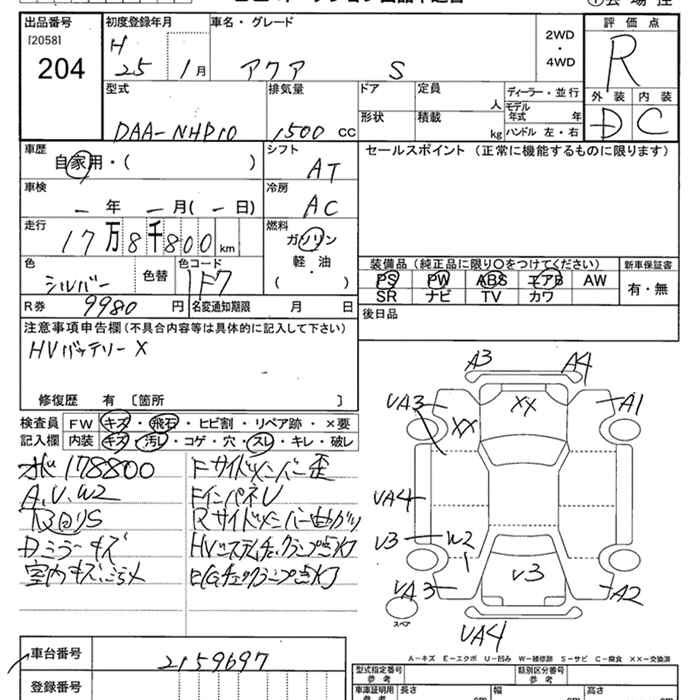 出品番号
[2058]
204
初度登録年月
H
25 1月
車名・グレード
アクア S
2WD
・
4WD
評価点
R
外装 内装
D C
型式
DAA-NHP10
排気量
1500 CC
ドア
定員
人
ディーラー・並行
形状
積載
kg
モデル
年式 年
ハンドル 左・右
車歴
自家用・( )
シフト
AT
セールスポイント (正常に機能するものに限ります)
車検
— 年 — 月(— 日)
冷房
AC
走行
17万8千800 km
燃料
ガソリン
軽・油
( )
色
シルバー
色替
色コード
1F7
装備品(純正品に限り○をつけてください)
新車保証書
PS PW ABS エアB AW
SR ナビ TV カワ
有・無
R券 9980 円
名変通知期限 月 日
後日品
注意事項申告欄(不具合内容等は具体的に記入して下さい)
HVバッテリーX
修復歴 有 〔箇所 〕
検査員
記入欄
FW キズ・飛石・ヒビ割・リペア跡・×要
内装 キズ・汚レ・コゲ・穴・スレ・キレ・破レ
メ178800
A.U.W2
Dミラーキズ
Fサイドメンバー歪
FインパネU
Rサイドメンバー曲がり
A3 A4
UA3 XX XX A1
UA4
U3 W2
UA3 U3 A2
スペア
UA4
A－キズ E－エクボ U－凹み W－補修跡 S－サビ C－腐食 ××－交換済
車台番号 2159697
登録番号
型式指定番号
参考
類別区分番号
参考
車庫証明用
参考
長さ
幅
高さ